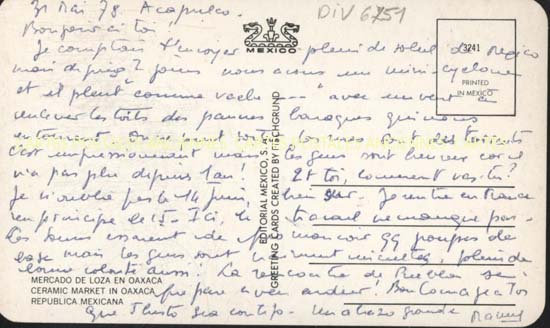 31 Mai 78. Acapulco.
DIV 6251
Bonjour à toi
MEXICO
3241
PRINTED
IN MEXICO
Je comptais t'envoyer plein de soleil de Mexico
mais depuis 2 jours nous avons un mini-cyclone
et il pleut "comme vache" -- avec un vent à
enlever les toits des pauvres baraques qui nous
entourent. On ne peut sortir, les rues sont des torrents
c'est impressionnant mais les gens sont heureux car il
n'a pas plu depuis 1 an! Et toi, comment vas-tu?
Je n'oublie pas le 14 juin, bien sûr. Je rentre en France
en principe le 15- Ici, le travail ne manque pas-
les
base mais les gens sont vraiment plein de
bonne volonté aussi! La rencontre de Puebla se
prépare avec ardeur! Bon courage à toi
Que Christo sea contigo. Un abrazo grande
EDITORIAL MEXICO, S. A.
GREETING CARDS CREATED BY FISCHGRUND
MERCADO DE LOZA EN OAXACA
CERAMIC MARKET IN OAXACA
REPUBLICA MEXICANA